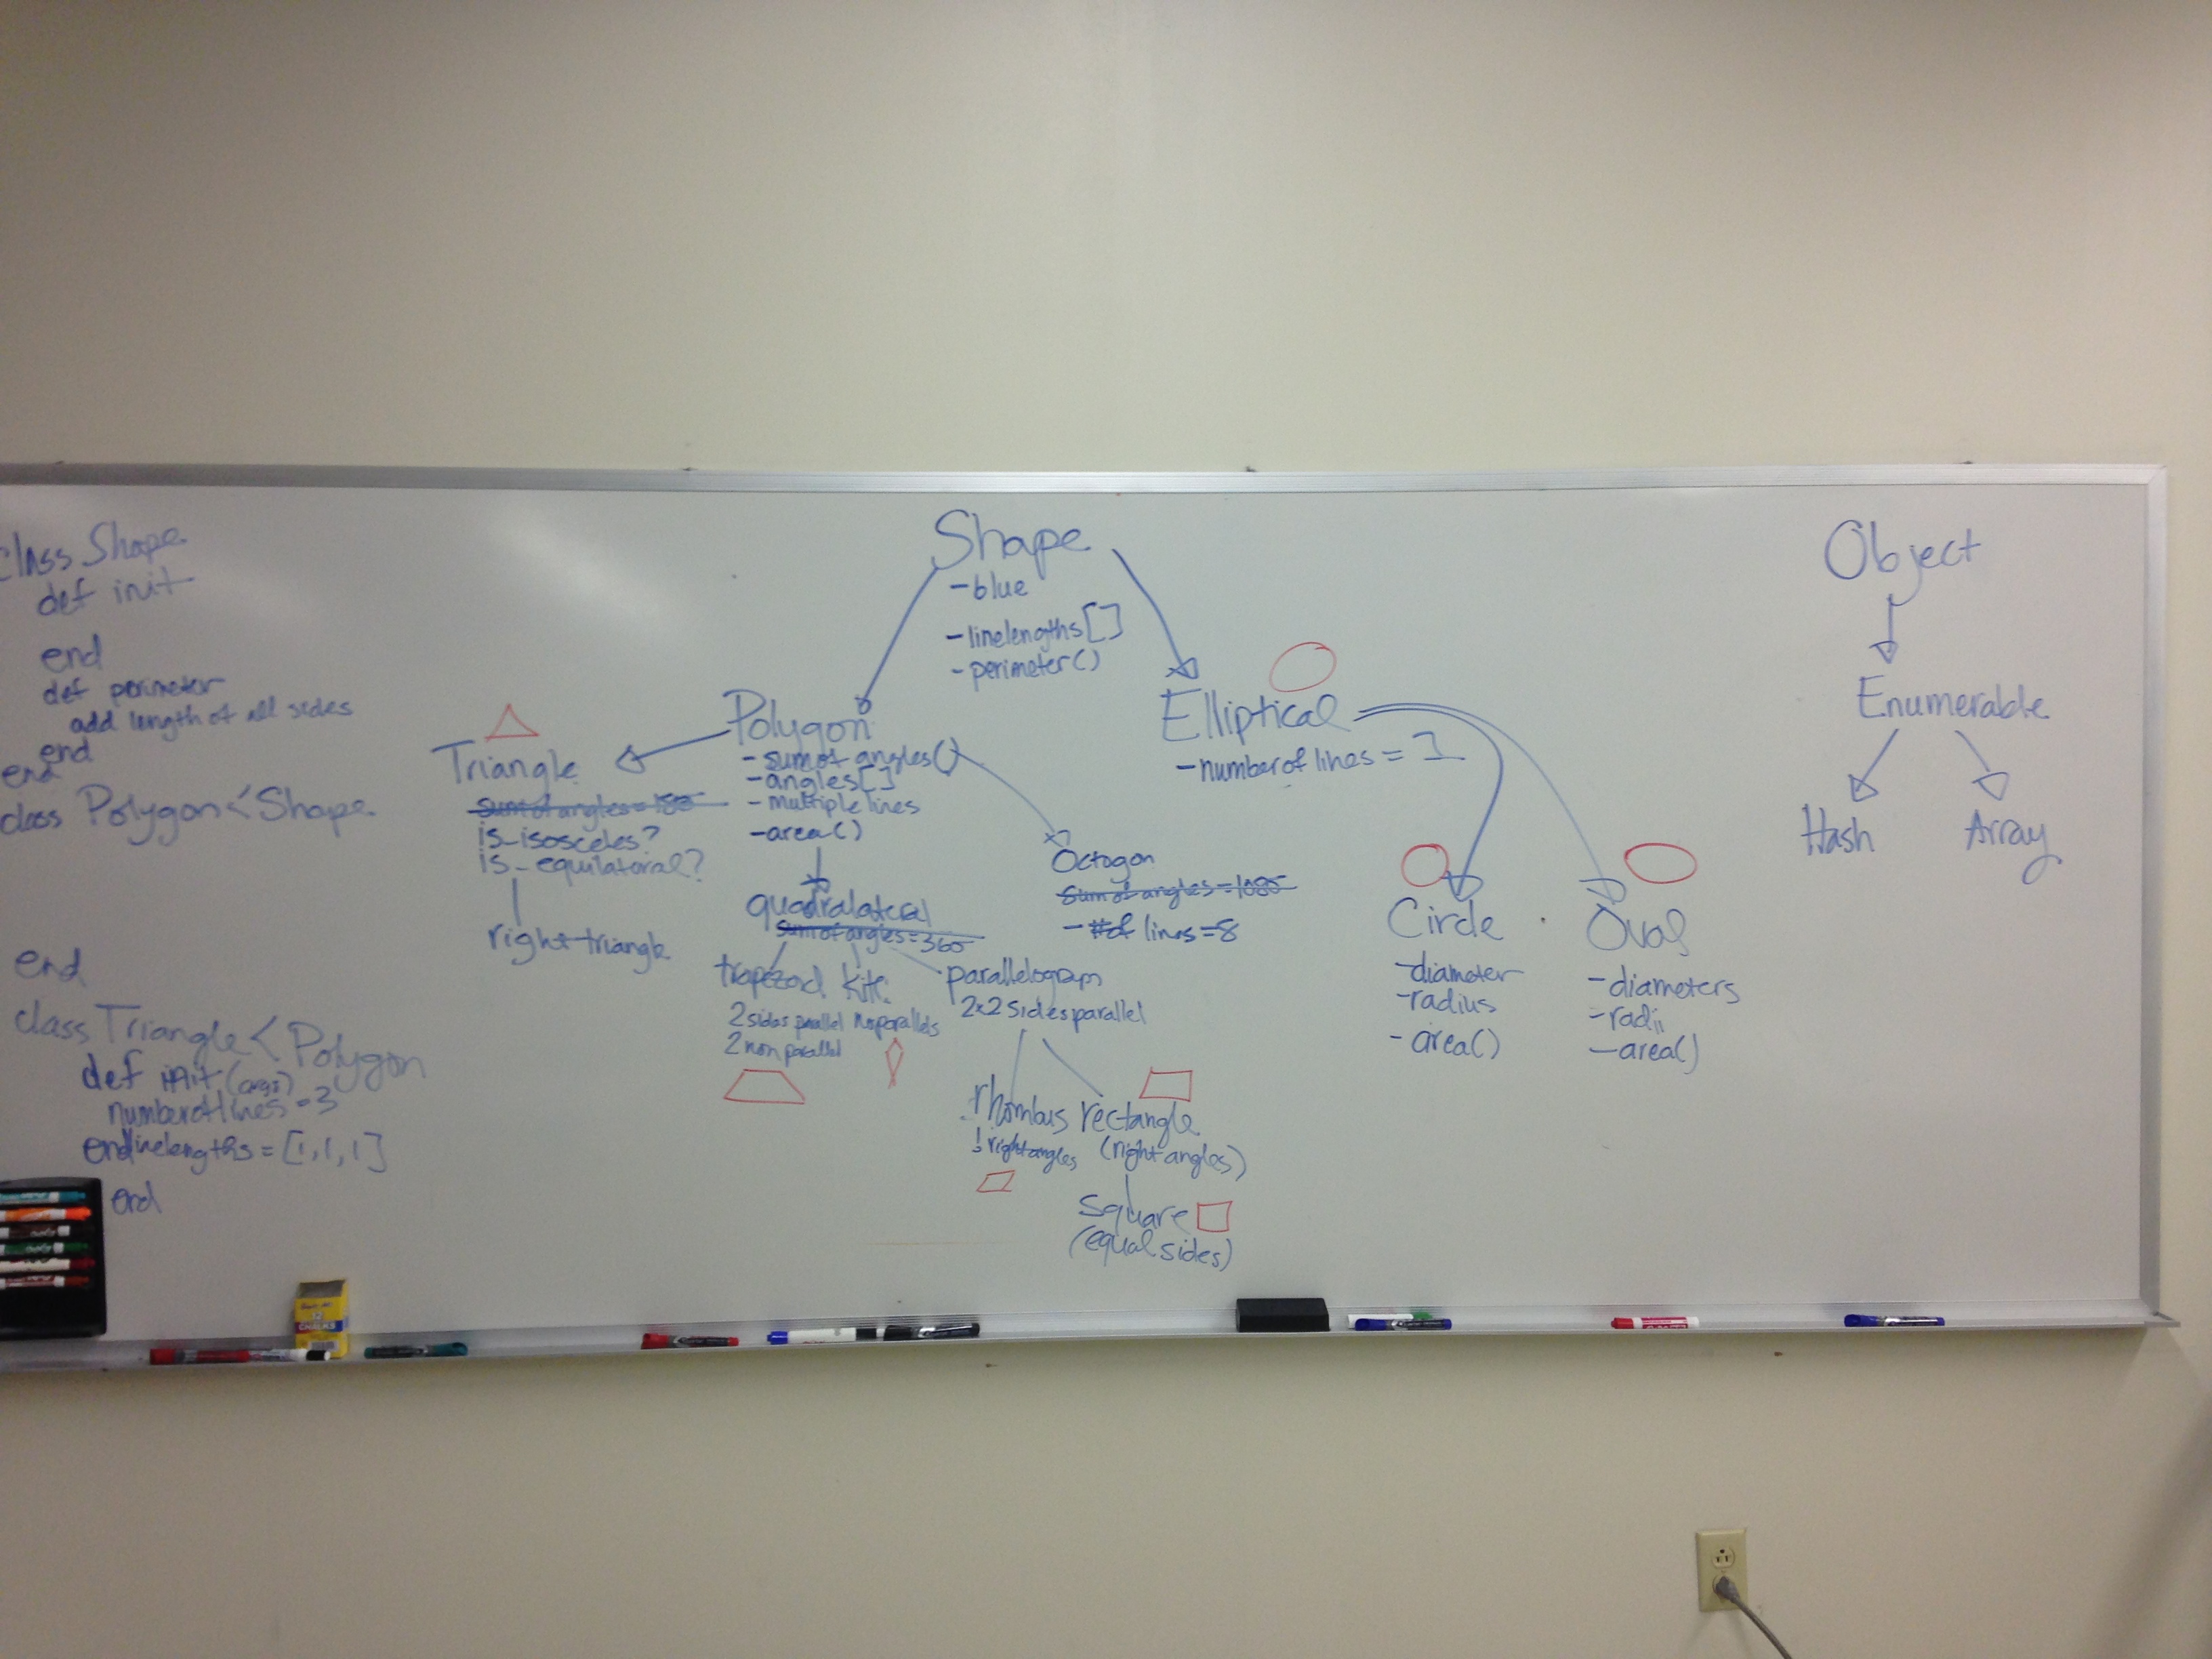 class Shape
def init
end
def perimeter
add length of all sides
end
end
class Polygon < Shape
end
class Triangle < Polygon
def init (args)
number of lines = 3
end linelengths = [1, 1, 1]
end
Shape
- blue
- linelengths [ ]
- perimeter ( )
Polygon
- sum of angles ( )
- angles [ ]
- multiple lines
- area ( )
Triangle
sum of angles = 180
is_isosceles?
is_equilateral?
right triangle
quadralateral
sum of angles = 360
trapezoid
2 sides parallel
2 non parallel
kite
no parallels
parallelogram
2x2 sides parallel
rhombus
! right angles
rectangle
(right angles)
square
(equal sides)
Octogon
sum of angles = 1080
- # of lines = 8
Elliptical
- number of lines = 1
Circle
- diameter
- radius
- area ( )
Oval
- diameters
- radii
- area ( )
Object
Enumerable
Hash
Array
CHALKS